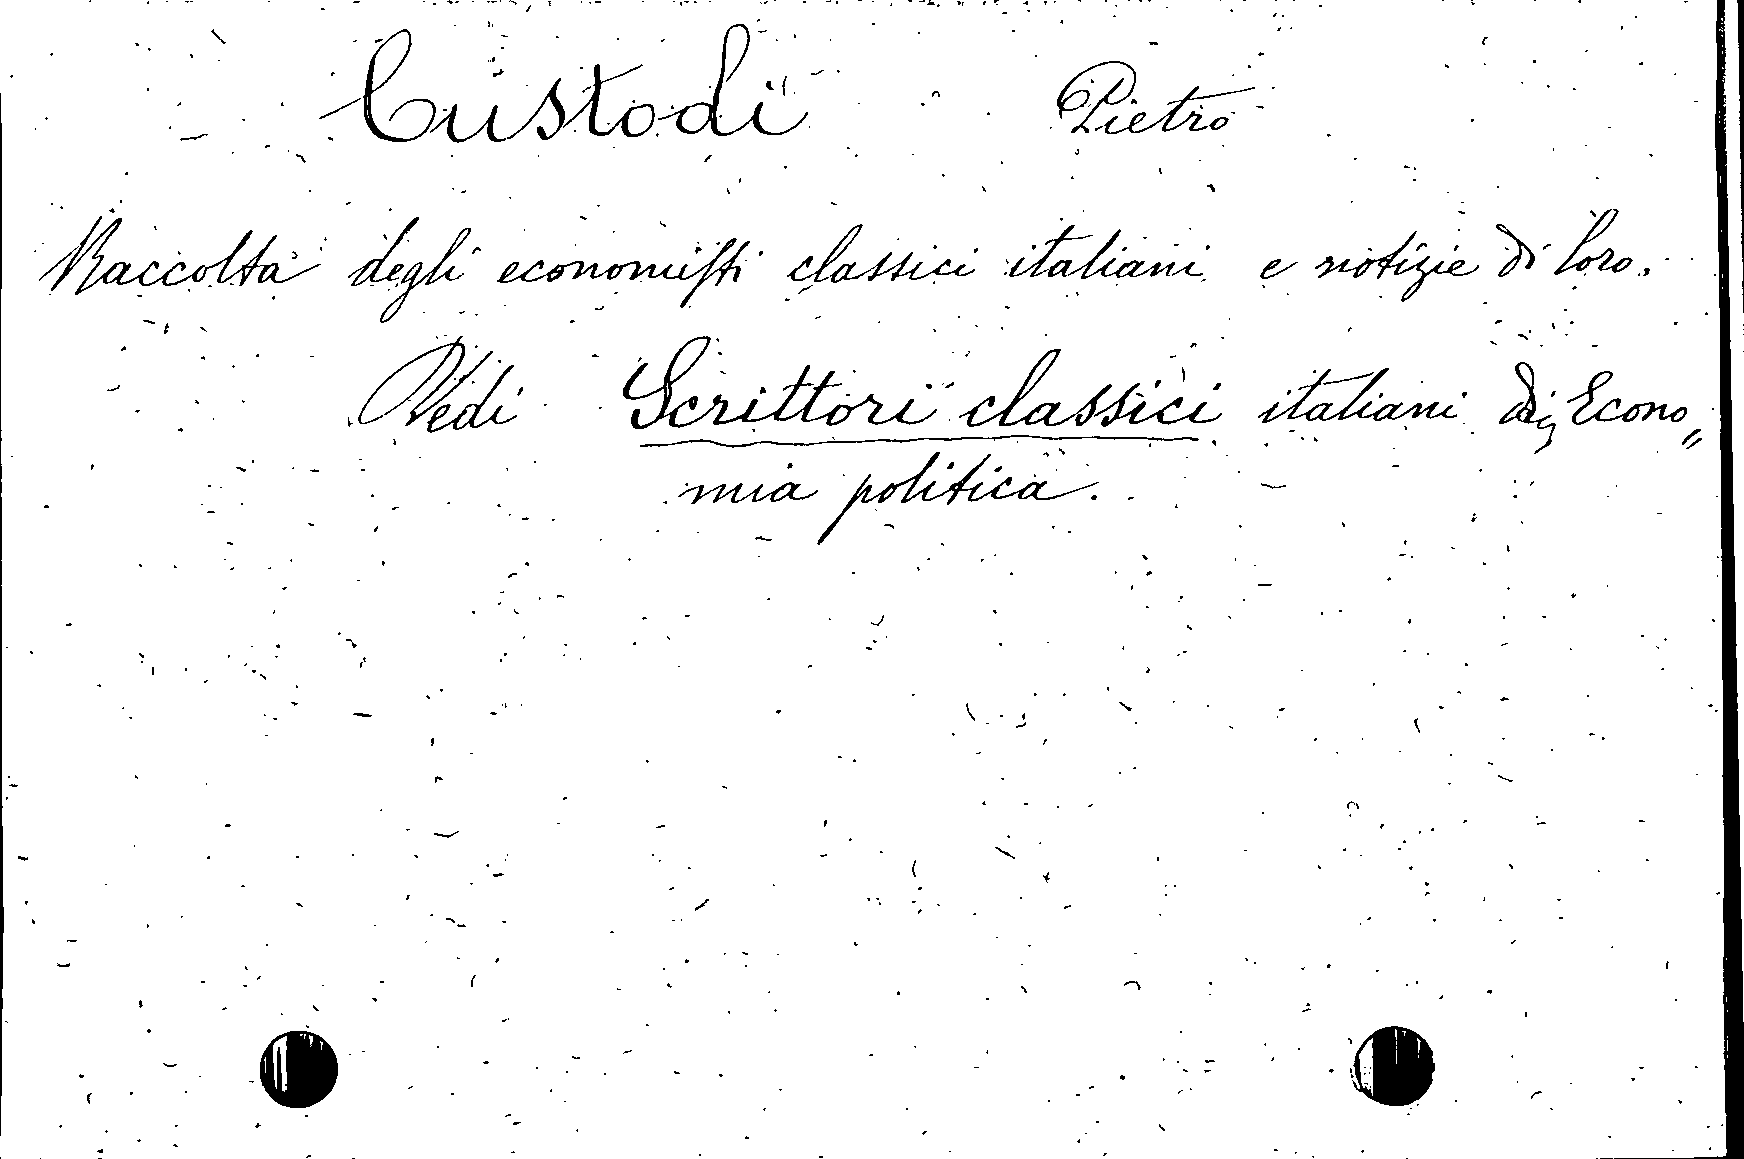 Custodi Pietro
Raccolta degli economisti classici italiani e notizie di loro.
Vedi Scrittori classici italiani di Econo„
mia politica.